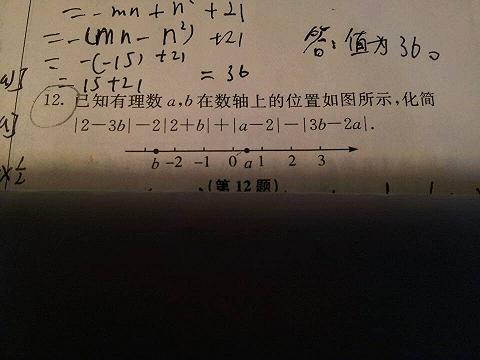 = -mn + n² + 21
= -(mn - n²) + 21
= -(-15) + 21
= 15 + 21 = 36
答：值为36。
12. 已知有理数 a,b 在数轴上的位置如图所示,化简
|2-3b|-2|2+b|+|a-2|-|3b-2a|.
b -2 -1 0 a 1 2 3
(第12题)